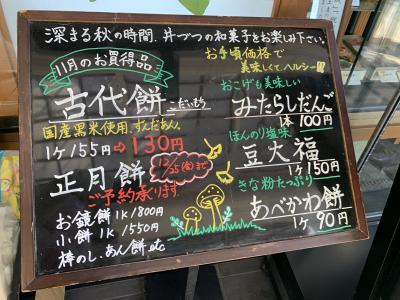 深まる秋の時間、井づつの和菓子をお楽しみ下さい。
11月のお買得品
古代餅 こだいもち
国産黒米使用、ずんだあん。
1ヶ155円⇒130円
正月餅
12/25(金)まで
ご予約承ります。
お鏡餅 1K/800円
小餅 1K/550円
棒のし、あん餅 etc
お手頃価格で
美味しくて、ヘルシー
おこげも美味しい
みたらしだんご
1本100円
ほんのり塩味
豆大福
1ヶ150円
きな粉たっぷり
あべかわ餅
1ヶ90円